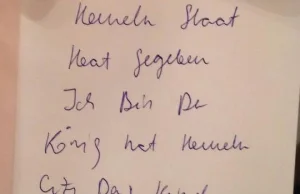 Hemeln Staat
Heat gegeben
Ich Bin De
König hat Hemeln